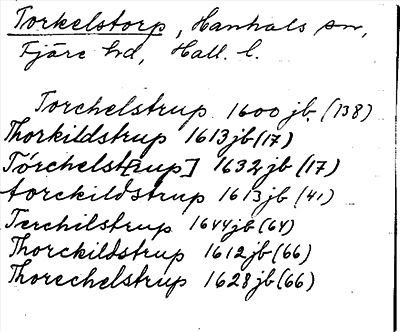 Torkelstorp, Hanhals sn,
Fjäre hd, Hall. l.
Torchelstrup 1600 jb (138)
Thorkildstrup 1613 jb (17)
Törchelst[rup] 1632 jb (17)
torckildstrup 1613 jb (41)
Terchilstrup 1644 jb (64)
Thorckildstrup 1612 jb (66)
Thorechelstrup 1628 jb (66)